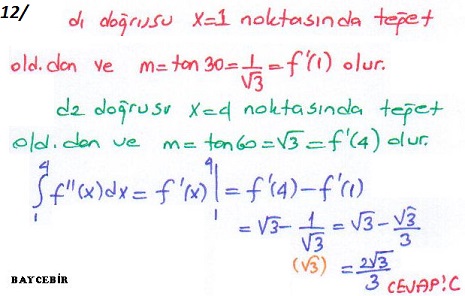 12/
d₁ doğrusu x=1 noktasında teğet
old.dan ve m=tan30=1/√3=f'(1) olur.
d₂ doğrusu x=4 noktasında teğet
old.dan ve m=tan60=√3=f'(4) olur.
∫₁⁴ f''(x)dx = f'(x)|₁⁴ = f'(4)-f'(1)
= √3 - 1/√3 = √3 - √3/3
(√3) = 2√3/3 CEVAP:C
BAYCEBİR